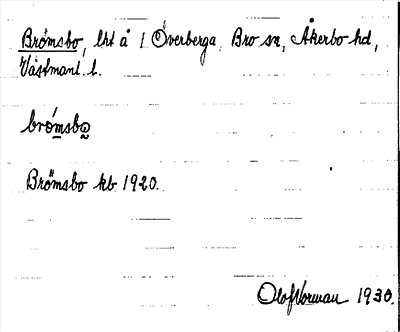 Brömsbo, lht å 1 Överberga, Bro sn, Åkerbo hd,
Västmanl. l.
brómsbω
Brömsbo kb 1920.
Olof Norman 1930.